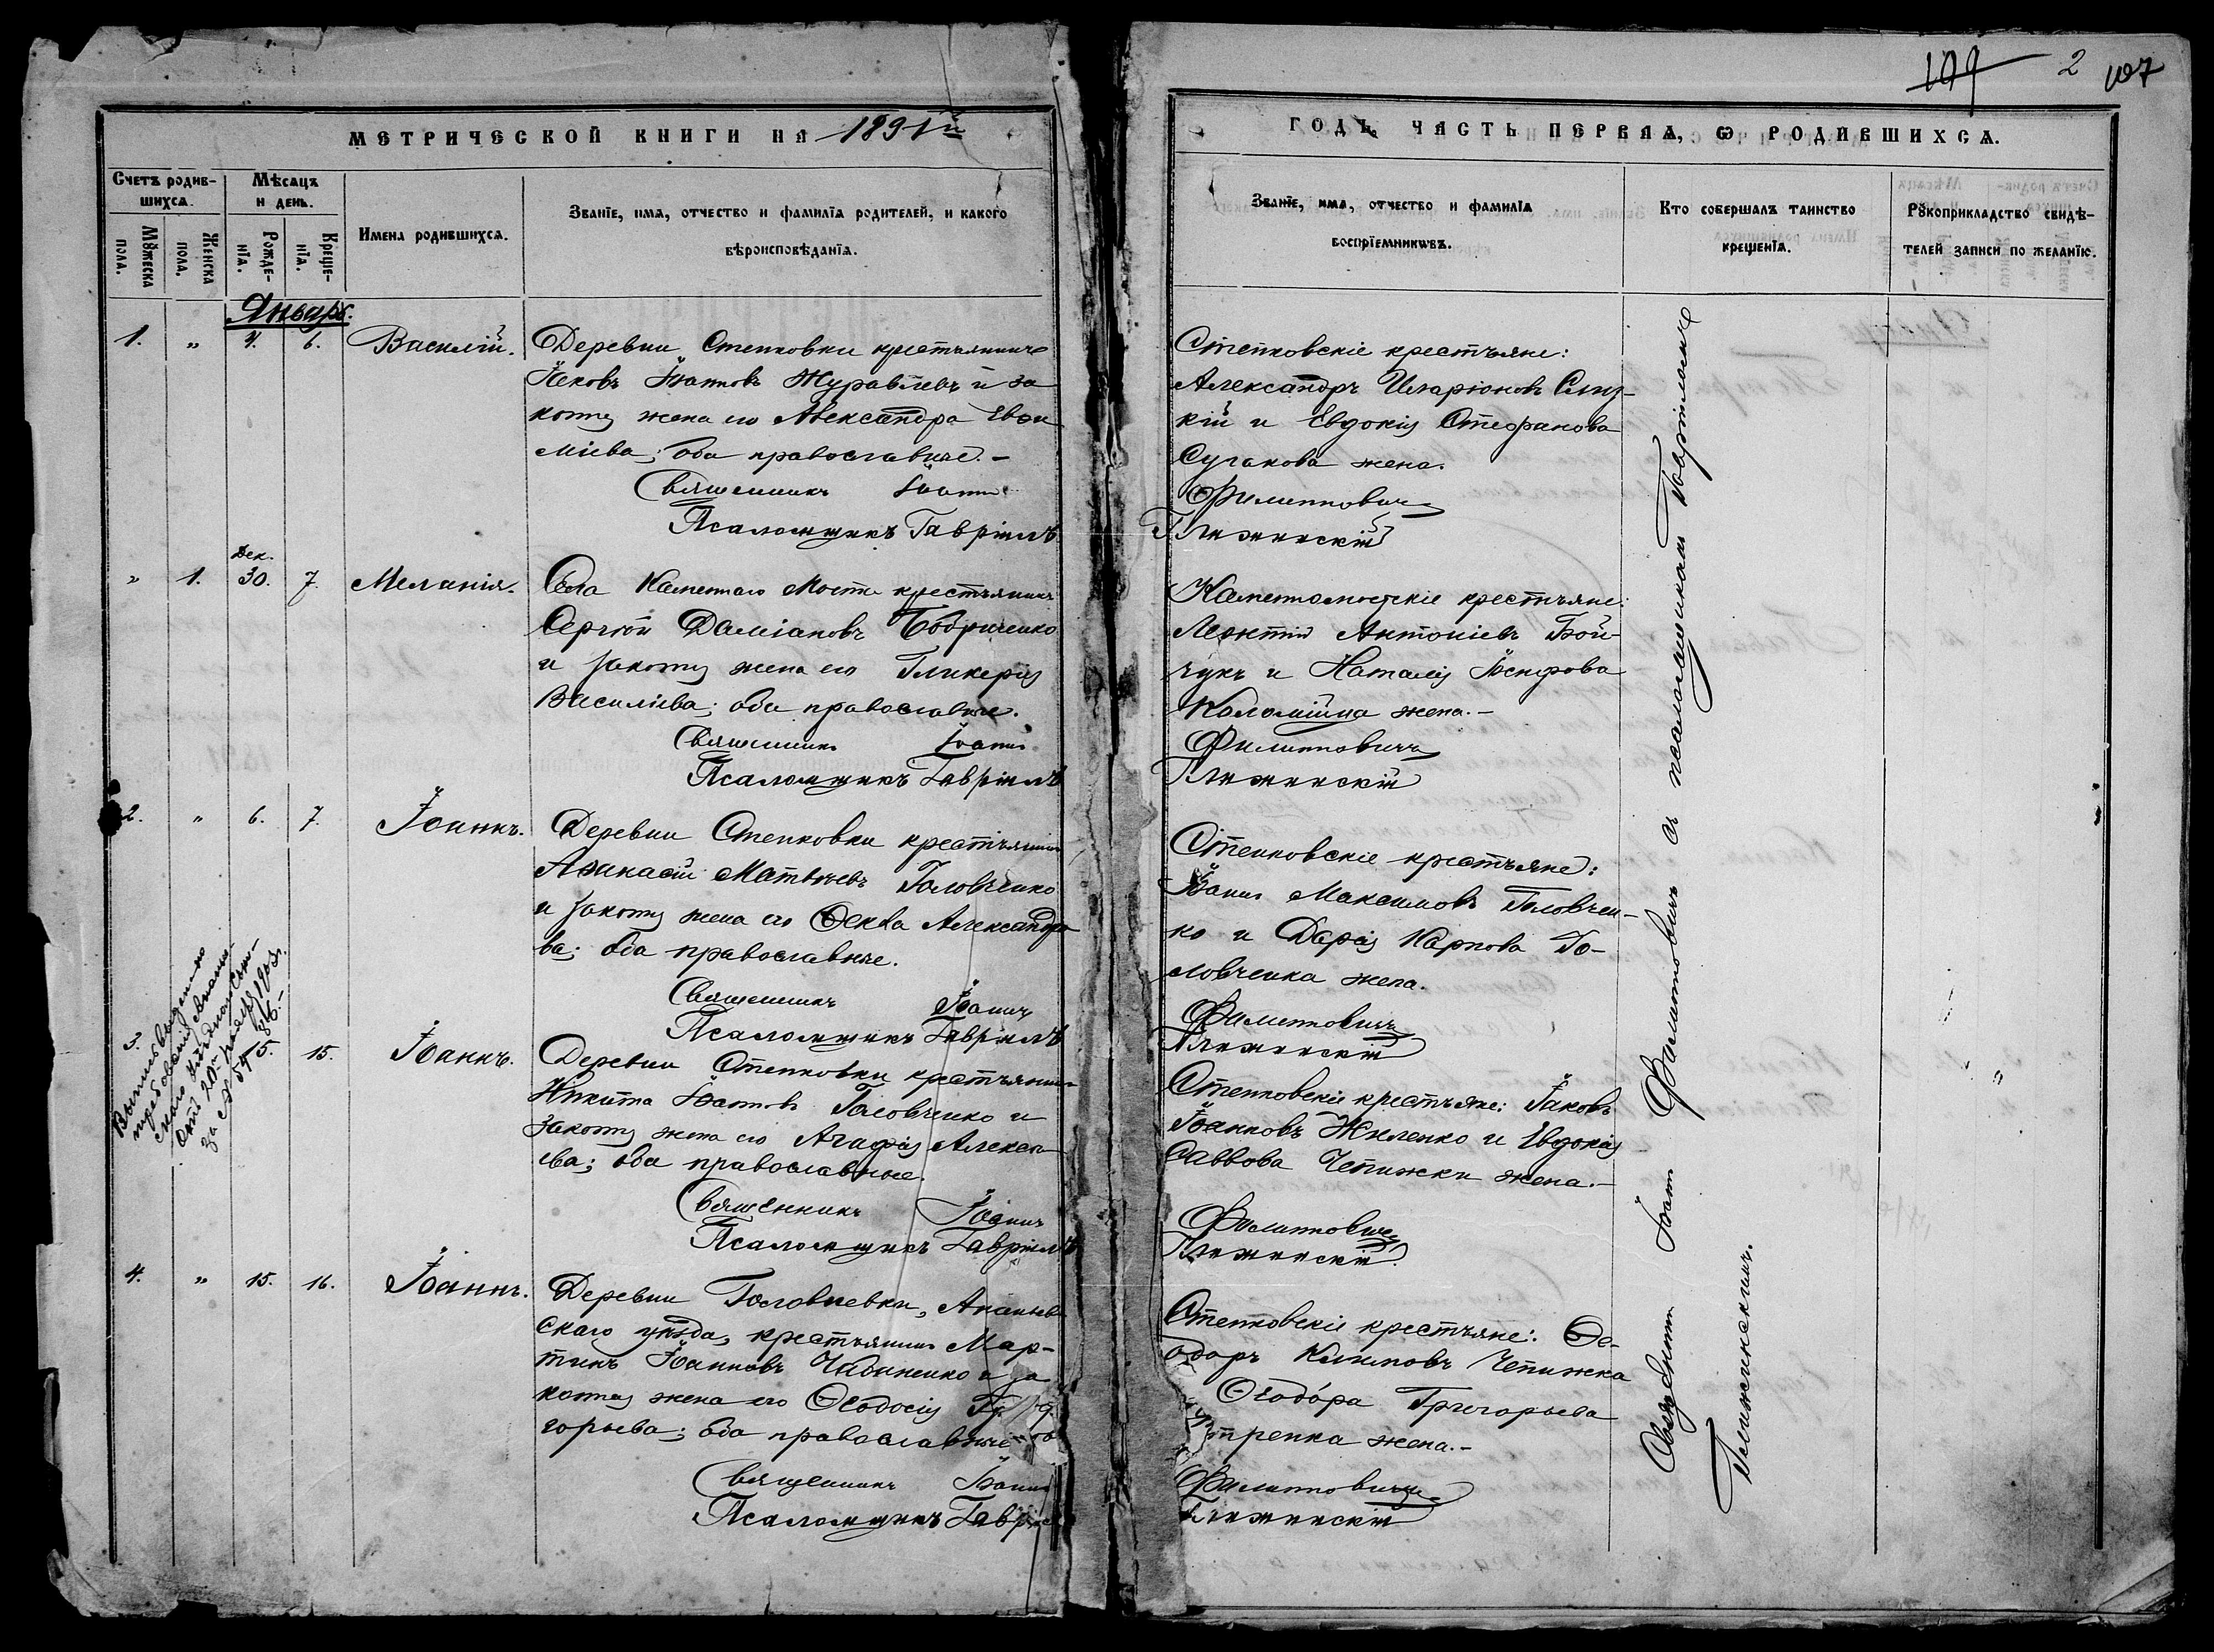 199 2 107
МЕТРИЧЕСКОЙ КНИГИ НА 1891й
ГОДЪ, ЧАСТЬ ПЕРВАЯ, Ѡ РОДИВШИХСѦ.
Счетъ родив-
шихсѧ.
Мѣсѧцъ
и день.
Мꙋжеска
пола.
Женска
пола.
Рожде-
нїѧ.
Креще-
нїѧ.
Имена родившихсѧ.
Званїе, имѧ, отчество и фамилїѧ родителей, и какого
вѣроисповѣданїѧ.
Званїе, имѧ, отчество и фамилїѧ
воспрїемникѡвъ.
Кто совершалъ таинство
крещенїѧ.
Рꙋкоприкладство свидѣ-
телей записи по желанїю.
Январь.
1. „ 4. 6. Василій.
Деревни Степковки крестьянинъ
Іаковъ Іоанновъ Журавлевъ и за
конная жена его Александра Евѳи
міева; оба православные.-
Священникъ Іоаннъ
Псаломщикъ Гавріилъ
Степковскіе крестьяне:
Александръ Иларіоновъ
и Евдокія Стефанова
жена.
Филипповичъ
Глижинскій
Дек.
„ 1. 30. 7. Меланія.
Села Каменнаго Моста крестьянинъ
Сергій Даміановъ Бобриченко
и законная жена его Гликерія
Василіева; оба православные.
Священникъ Іоаннъ
Псаломщикъ Гавріилъ
Каменномостскіе крестьяне:
Леонтій Антоніевъ Бой-
чукъ и Наталія Іосифова
Коломійца жена.-
Филипповичъ
Глижинскій
2. „ 6. 7. Іоаннъ.
Деревни Степковки крестьянинъ
Аѳанасій Матвѣевъ Головченко
и законная жена его Ѳекла Александро
ва; оба православные.
Священникъ Іоаннъ
Псаломщикъ Гавріилъ
Степковскіе крестьяне:
Іоаннъ Максимовъ Головчен-
ко и Дарія Карпова Го-
ловченка жена.
Филипповичъ
Глижинскій
3. 15. 15. Іоаннъ.
Деревни Степковки крестьянинъ
Никита Іоанновъ Головченко и
законная жена его Агафія Алексі
ева; оба православные.
Священникъ Іоаннъ
Псаломщикъ Гавріилъ
Степковскіе крестьяне: Іаковъ
Іоанновъ Жиленко и Евдокія
Саввова Чепижки жена.-
Филипповичъ
Глижинскій
4. „ 15. 16. Іоаннъ.
Деревни Головлевки, Ананьев
скаго уѣзда, крестьянинъ Мар-
тинъ Іоанновъ Чабаненко и за
конная жена его Ѳеодосія Гри
горьева; оба православные
Священникъ Іоаннъ
Псаломщикъ Гавріилъ
Степковскіе крестьяне: Ѳе-
одоръ Климовъ Чепижка
Ѳеодора Григорьева
жена.-
Филипповичъ
Глижинскій
Священникъ Іоаннъ Филипповичъ съ псаломщикомъ Гавріиломъ
Глижинскимъ.